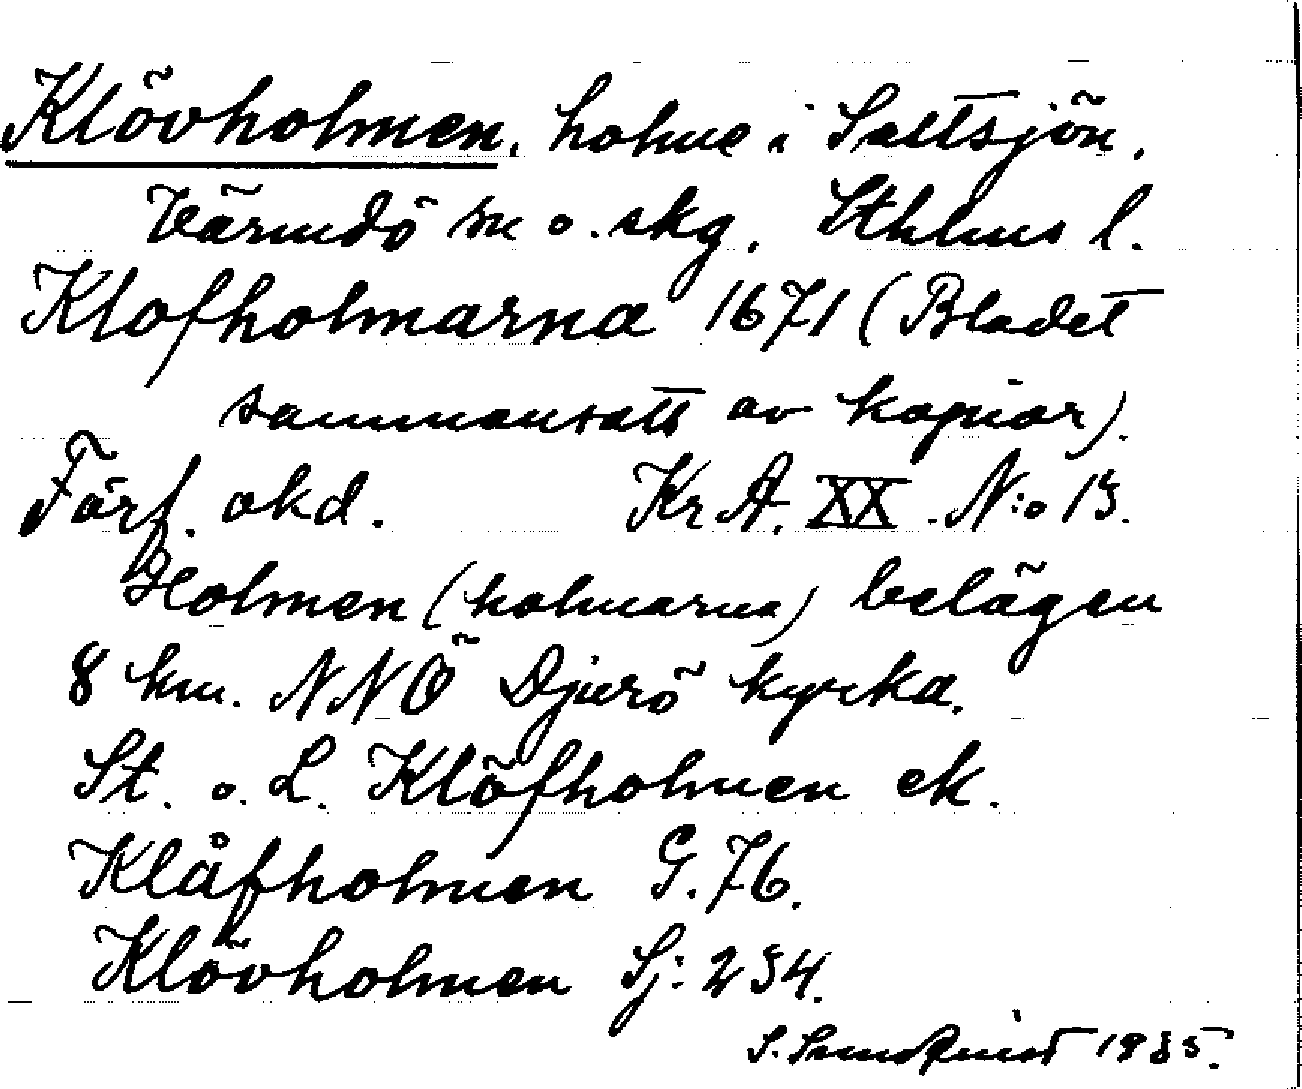 Klövholmen, holme i Saltsjön,
Värmdö sn o. skg, Sthlms l.
Klofholmarna 1671 (Bladet
sammansatt av kopior).
Förf. okd. Kr A. XX. N:o 13.
Holmen (holmarna) belägen
8 km. NNÖ Djurö kyrka.
St. o. L. Klöfholmen ek.
Klåfholmen G. 76.
Klövholmen Sj: 234.
S. Sundquist 1935.